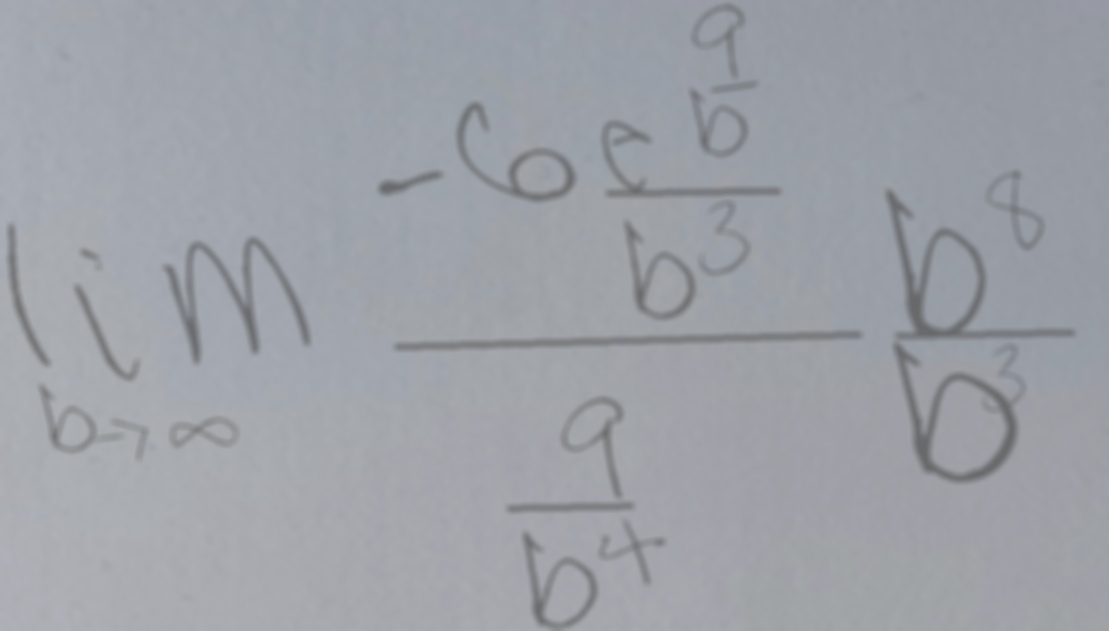 \lim_{b \to \infty} \frac{-6 \frac{e^{\frac{9}{b}}}{b^3}}{\frac{9}{b^4}} \frac{b^8}{b^3}